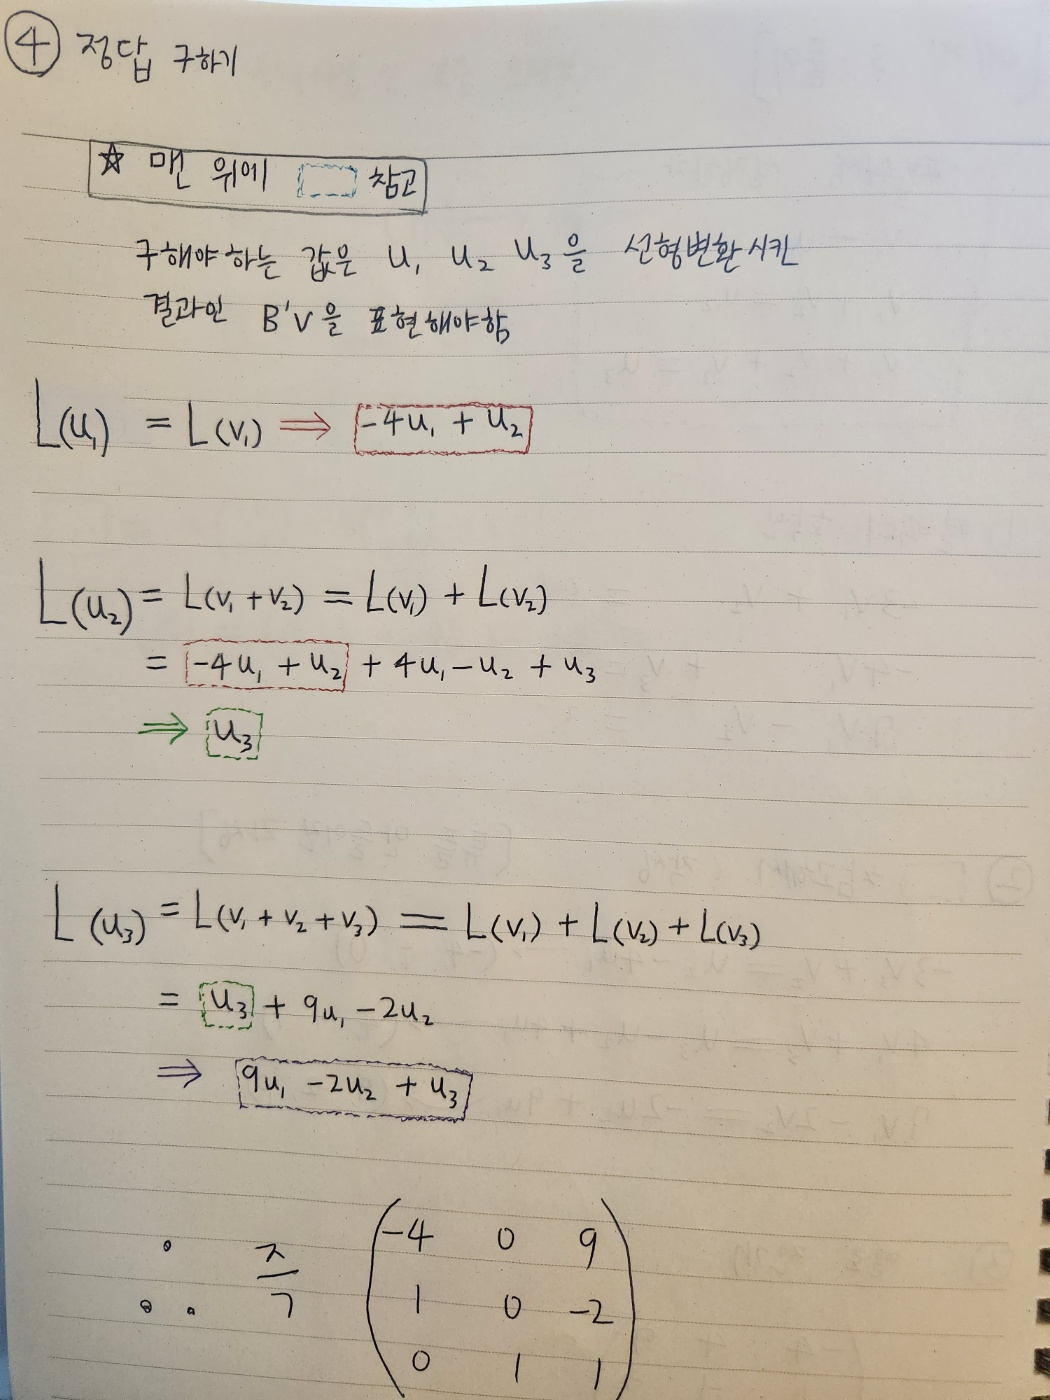 ④ 정답 구하기
☆ 맨 위에 참고
구해야 하는 값은 u₁ u₂ u₃을 선형변환시킨
결과인 B'V을 표현해야함
L(u₁) = L(v₁) ⇒ -4u₁ + u₂
L(u₂) = L(v₁ + v₂) = L(v₁) + L(v₂)
= -4u₁ + u₂ + 4u₁ - u₂ + u₃
⇒ u₃
L(u₃) = L(v₁ + v₂ + v₃) = L(v₁) + L(v₂) + L(v₃)
= u₃ + 9u₁ - 2u₂
⇒ 9u₁ - 2u₂ + u₃
∴ 즉
-4 0 9
1 0 -2
0 1 1